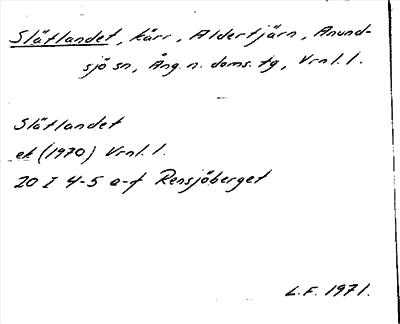 Slåtlandet, kärr, Aldertjärn, Anund-
sjö sn, Ång. n. doms. tg, Vrnl. l.
Slåtlandet
ek (1970) Vrnl. l.
20 I 4-5 e-f Rensjöberget
L.F. 1971.